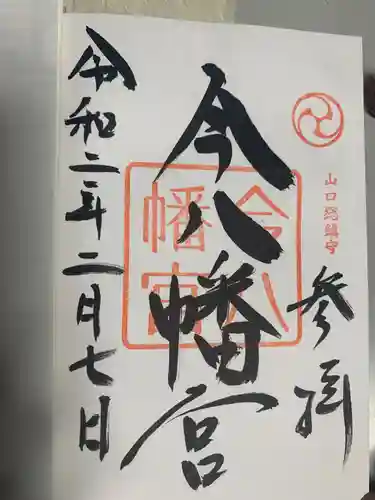 山口総鎮守
参拝
今八幡宮
今八幡宮
令和二年二月七日